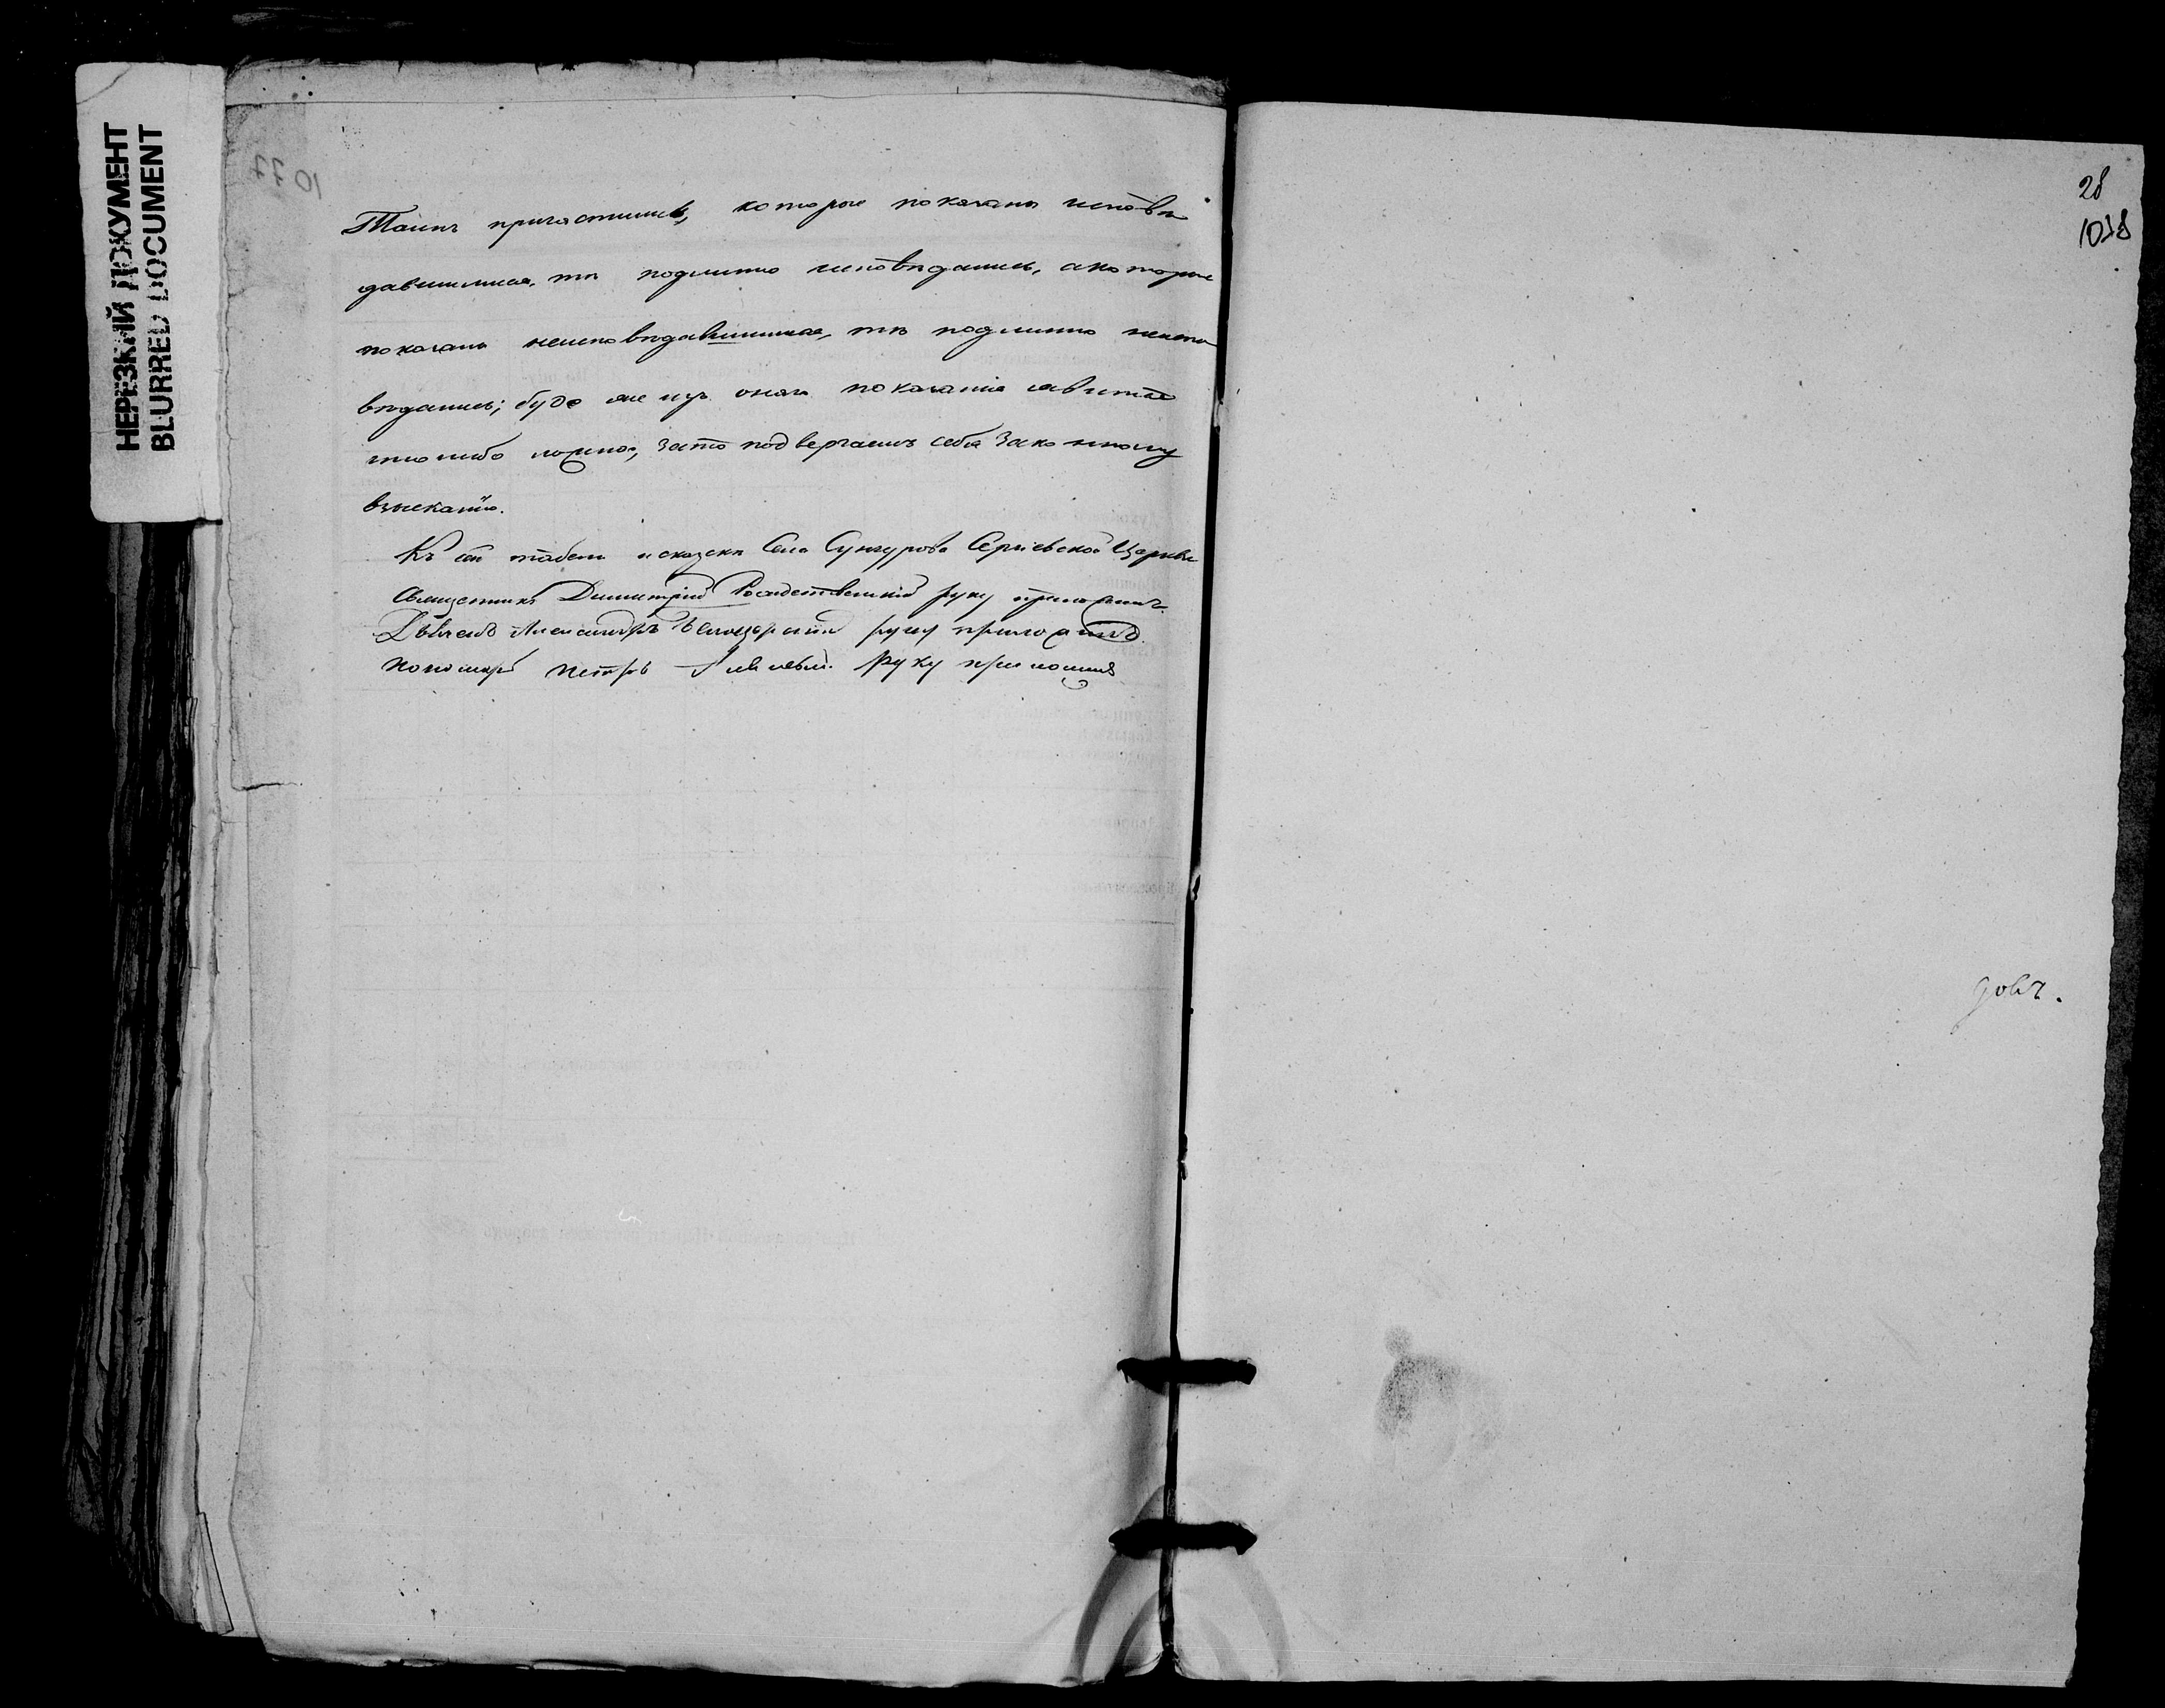 НЕРЕЗКИЙ ДОКУМЕНТ
BLURRED DOCUMENT
1077
Таинъ причастились, которые показаны исповѣ
давшимися, тѣ подлинно исповѣдались, а которые
показаны неисповѣдавшимися, тѣ подлинно неиспо
вѣдались; буде же изъ онаго показанія явится
что либо ложно, за то подвергаемъ себя законному
взысканію.
Къ сей табели и сказкѣ Села Сунгурова Сергіевской Церкви
Священникъ Димитрій Рождественскій руку приложилъ.
Дьячекъ Александръ руку приложилъ.
Пономарь Петръ руку приложилъ
28
1078